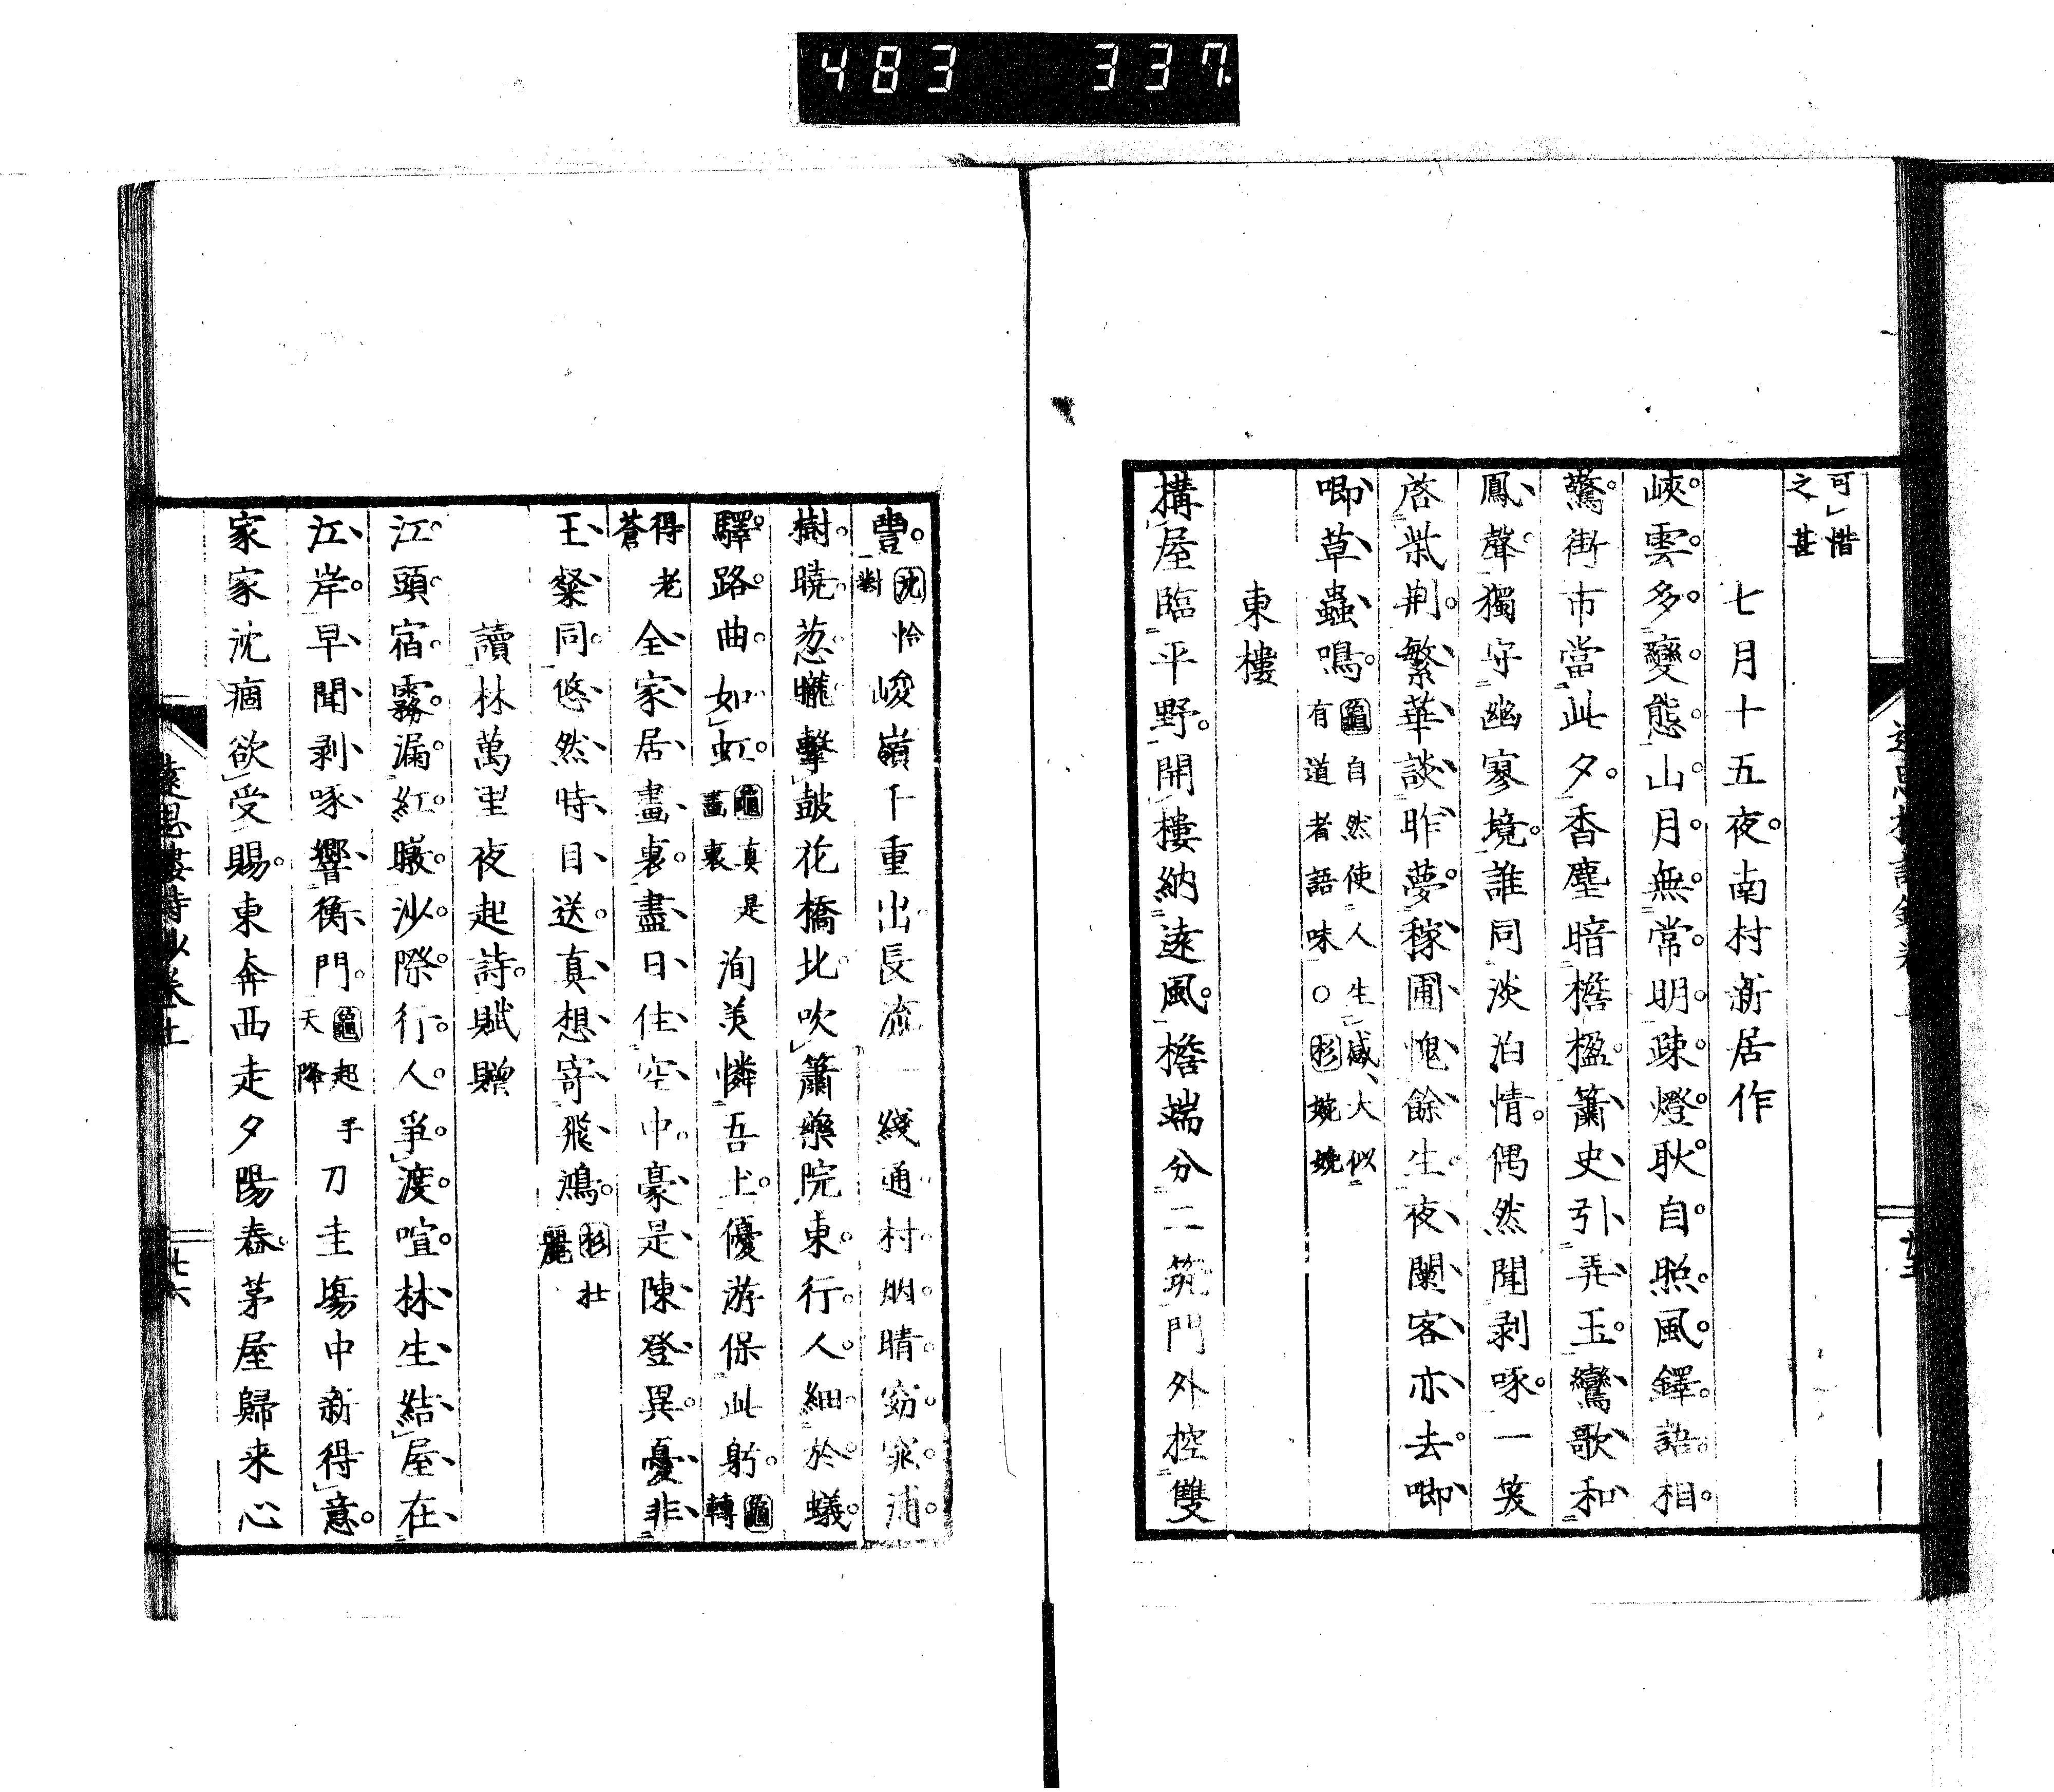 483 337
可惜
之甚
七月十五夜南村新居作
峽雲多變態山月無常明疎燈耿自照風鐸語相
驚街市當此夕香塵暗檐楹簫史引弄玉鸞歌和
鳳聲獨守幽寥境誰同淡泊情偶然聞剥啄一笑
啓柴荆繁華談昨夢稼圃愧餘生夜闌客亦去唧
唧草蟲鳴
龜自然使人生感大似
有道者語味〇杉婉婉
東樓
搆屋臨平野開樓納遠風檐端分二筑門外控雙
豊
沈恰
對
峻嶺千重出長流一綫通村烟晴窈窕浦
樹曉葱曨擊皷花橋北吹簫藥院東行人細於蟻
驛路曲如虹
龜真是
畵裏
洵美憐吾土優游保此躬
龜
轉
得老
蒼
全家居畵裏盡日住空中豪是陳登異憂非
王粲同悠然時目送真想寄飛鴻
杉壮
麗
讀林萬里夜起詩賦贈
江頭宿霧漏紅暾沙際行人爭渡喧林生結屋在
江岸早聞剥啄響衡門
龜起手
天降
刀圭塲中新得意
家家沈痼欲受賜東奔西走夕陽舂茅屋歸来心
遠思樓詩鈔卷上
廿六